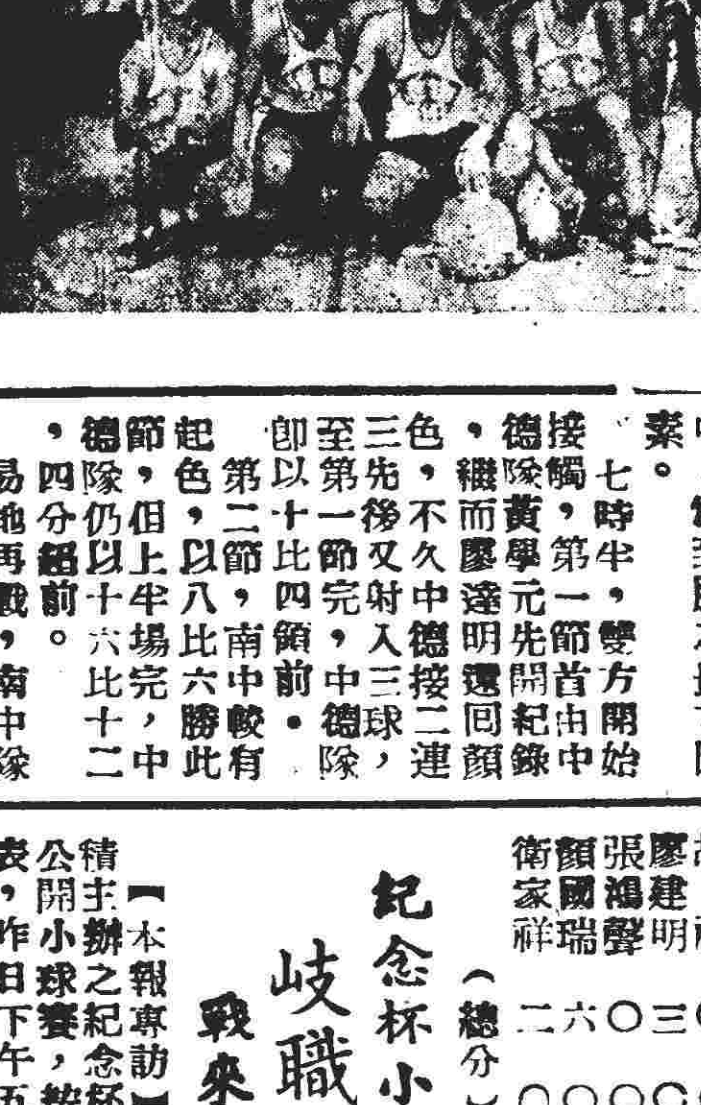 素。
七時半，雙方開始
接觸，第一節首由中
德隊黃學元先開紀錄
，繼而廖達明還回顏
色，不久中德接二連
三先後又射入三球，
至第一節完，中德隊
卽以十比四領前．
第二節，南中較有
起色，以八比六勝此
節，但上半場完，中
德隊仍以十六比十二
，四分超前。
易地再戰，南中隊
廖建明　三
張鴻聲　〇
顏國瑞　六
衛家祥　二
（總分
紀念杯小
岐職
戰來
【本報專訪】
積主辦之紀念杯
公開小球賽，按
表，昨日下午五